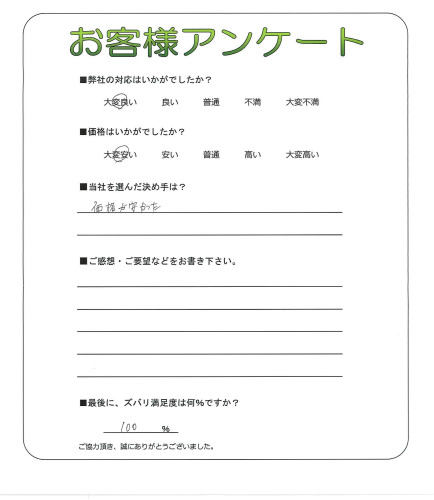 お客様アンケート
■弊社の対応はいかがでしたか？
大変良い 良い 普通 不満 大変不満
■価格はいかがでしたか？
大変安い 安い 普通 高い 大変高い
■当社を選んだ決め手は？
価格が安かった
■ご感想・ご要望などをお書き下さい。
■最後に、ズバリ満足度は何%ですか？
100 %
ご協力頂き、誠にありがとうございました。